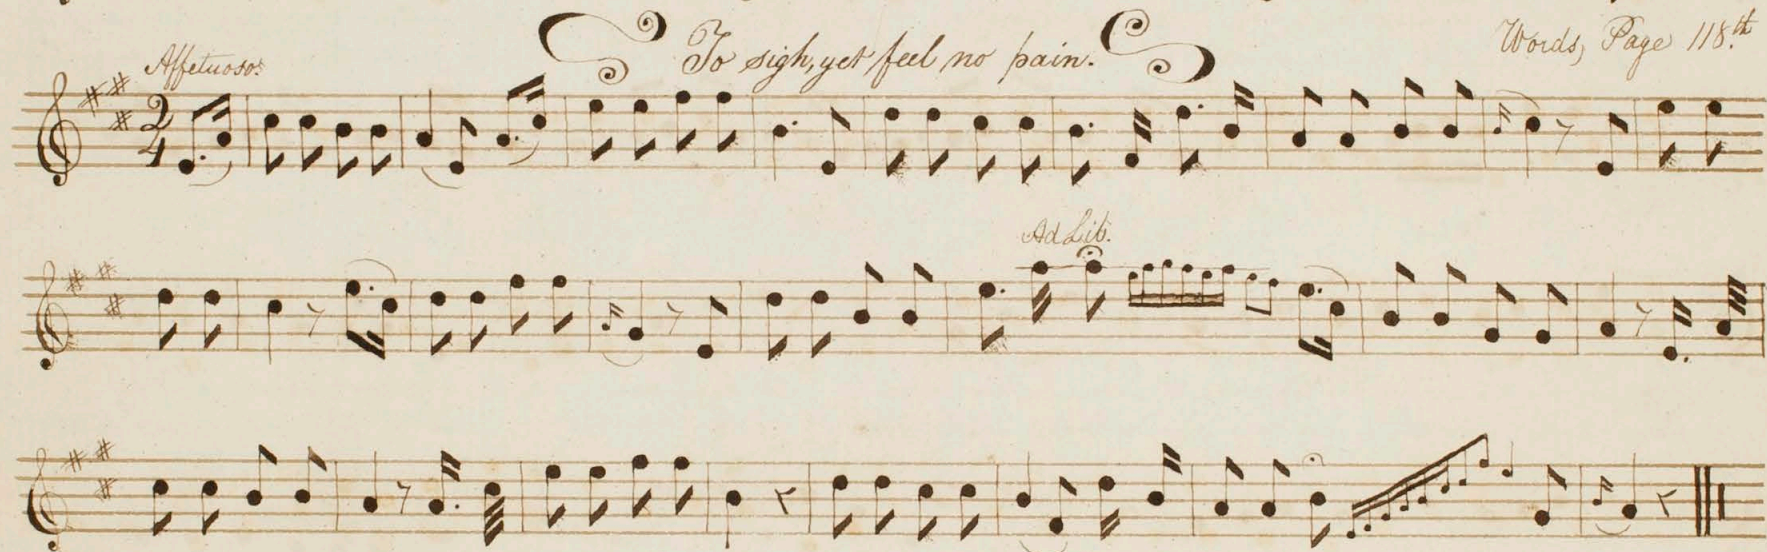 To sigh, yet feel no pain.
Words, Page 118.th
Affetuoso.
2/4
Ad Lib.